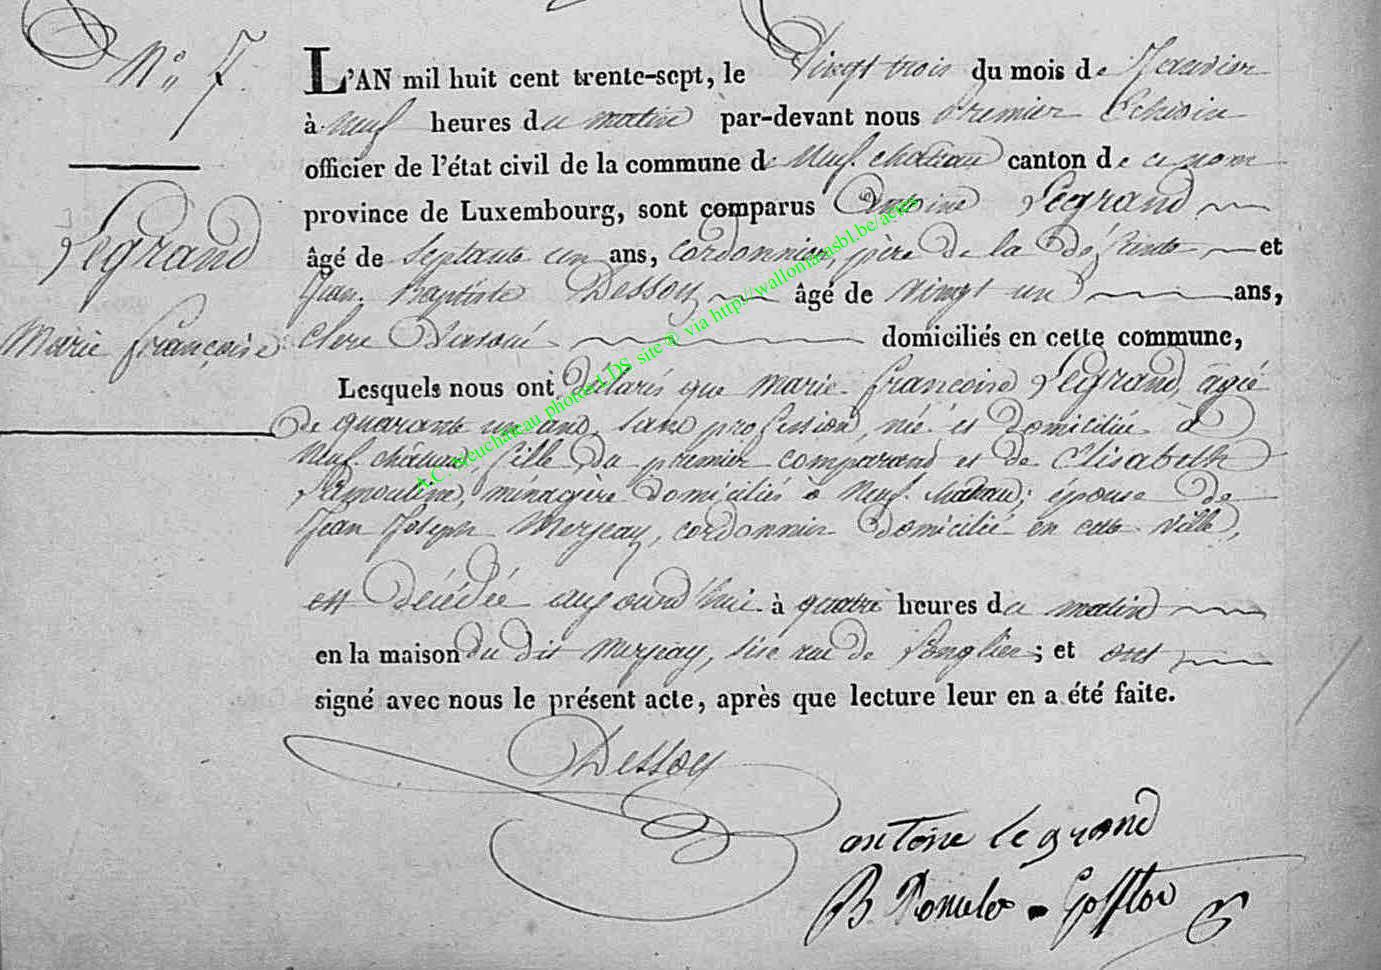 N° 7.
Legrand
Marie françoise
L'AN mil huit cent trente-sept, le Vingt trois du mois de Janvier
à Neuf heures du matin par-devant nous Premier Echevin
officier de l'état civil de la commune de Neufchateau canton de ce nom
province de Luxembourg, sont comparus Antoine Legrand
âgé de Septante un ans, cordonnier, père de la défunte et
Jean Baptiste Dessoy âgé de vingt un ans,
Clerc domiciliés en cette commune,
Lesquels nous ont déclarés que marie françoise Legrand, agée
de quarante un ans, sans profession, née et domiciliée à
Neufchateau fille du premier comparant et de Elisabeth
ménagère domiciliés à Neufchateau; épouse de
Jean Joseph Merjeay, cordonnier domicilié en cette ville,
est décédée aujourd'hui à quatre heures du matin
en la maison du dit Merjeay, sise rue de Longlier; et ont
signé avec nous le présent acte, après que lecture leur en a été faite.
Dessoy
antoine legrand
B.
A.C. Neuchateau photos LDS site @ via http://wallonia-asbl.be/actes